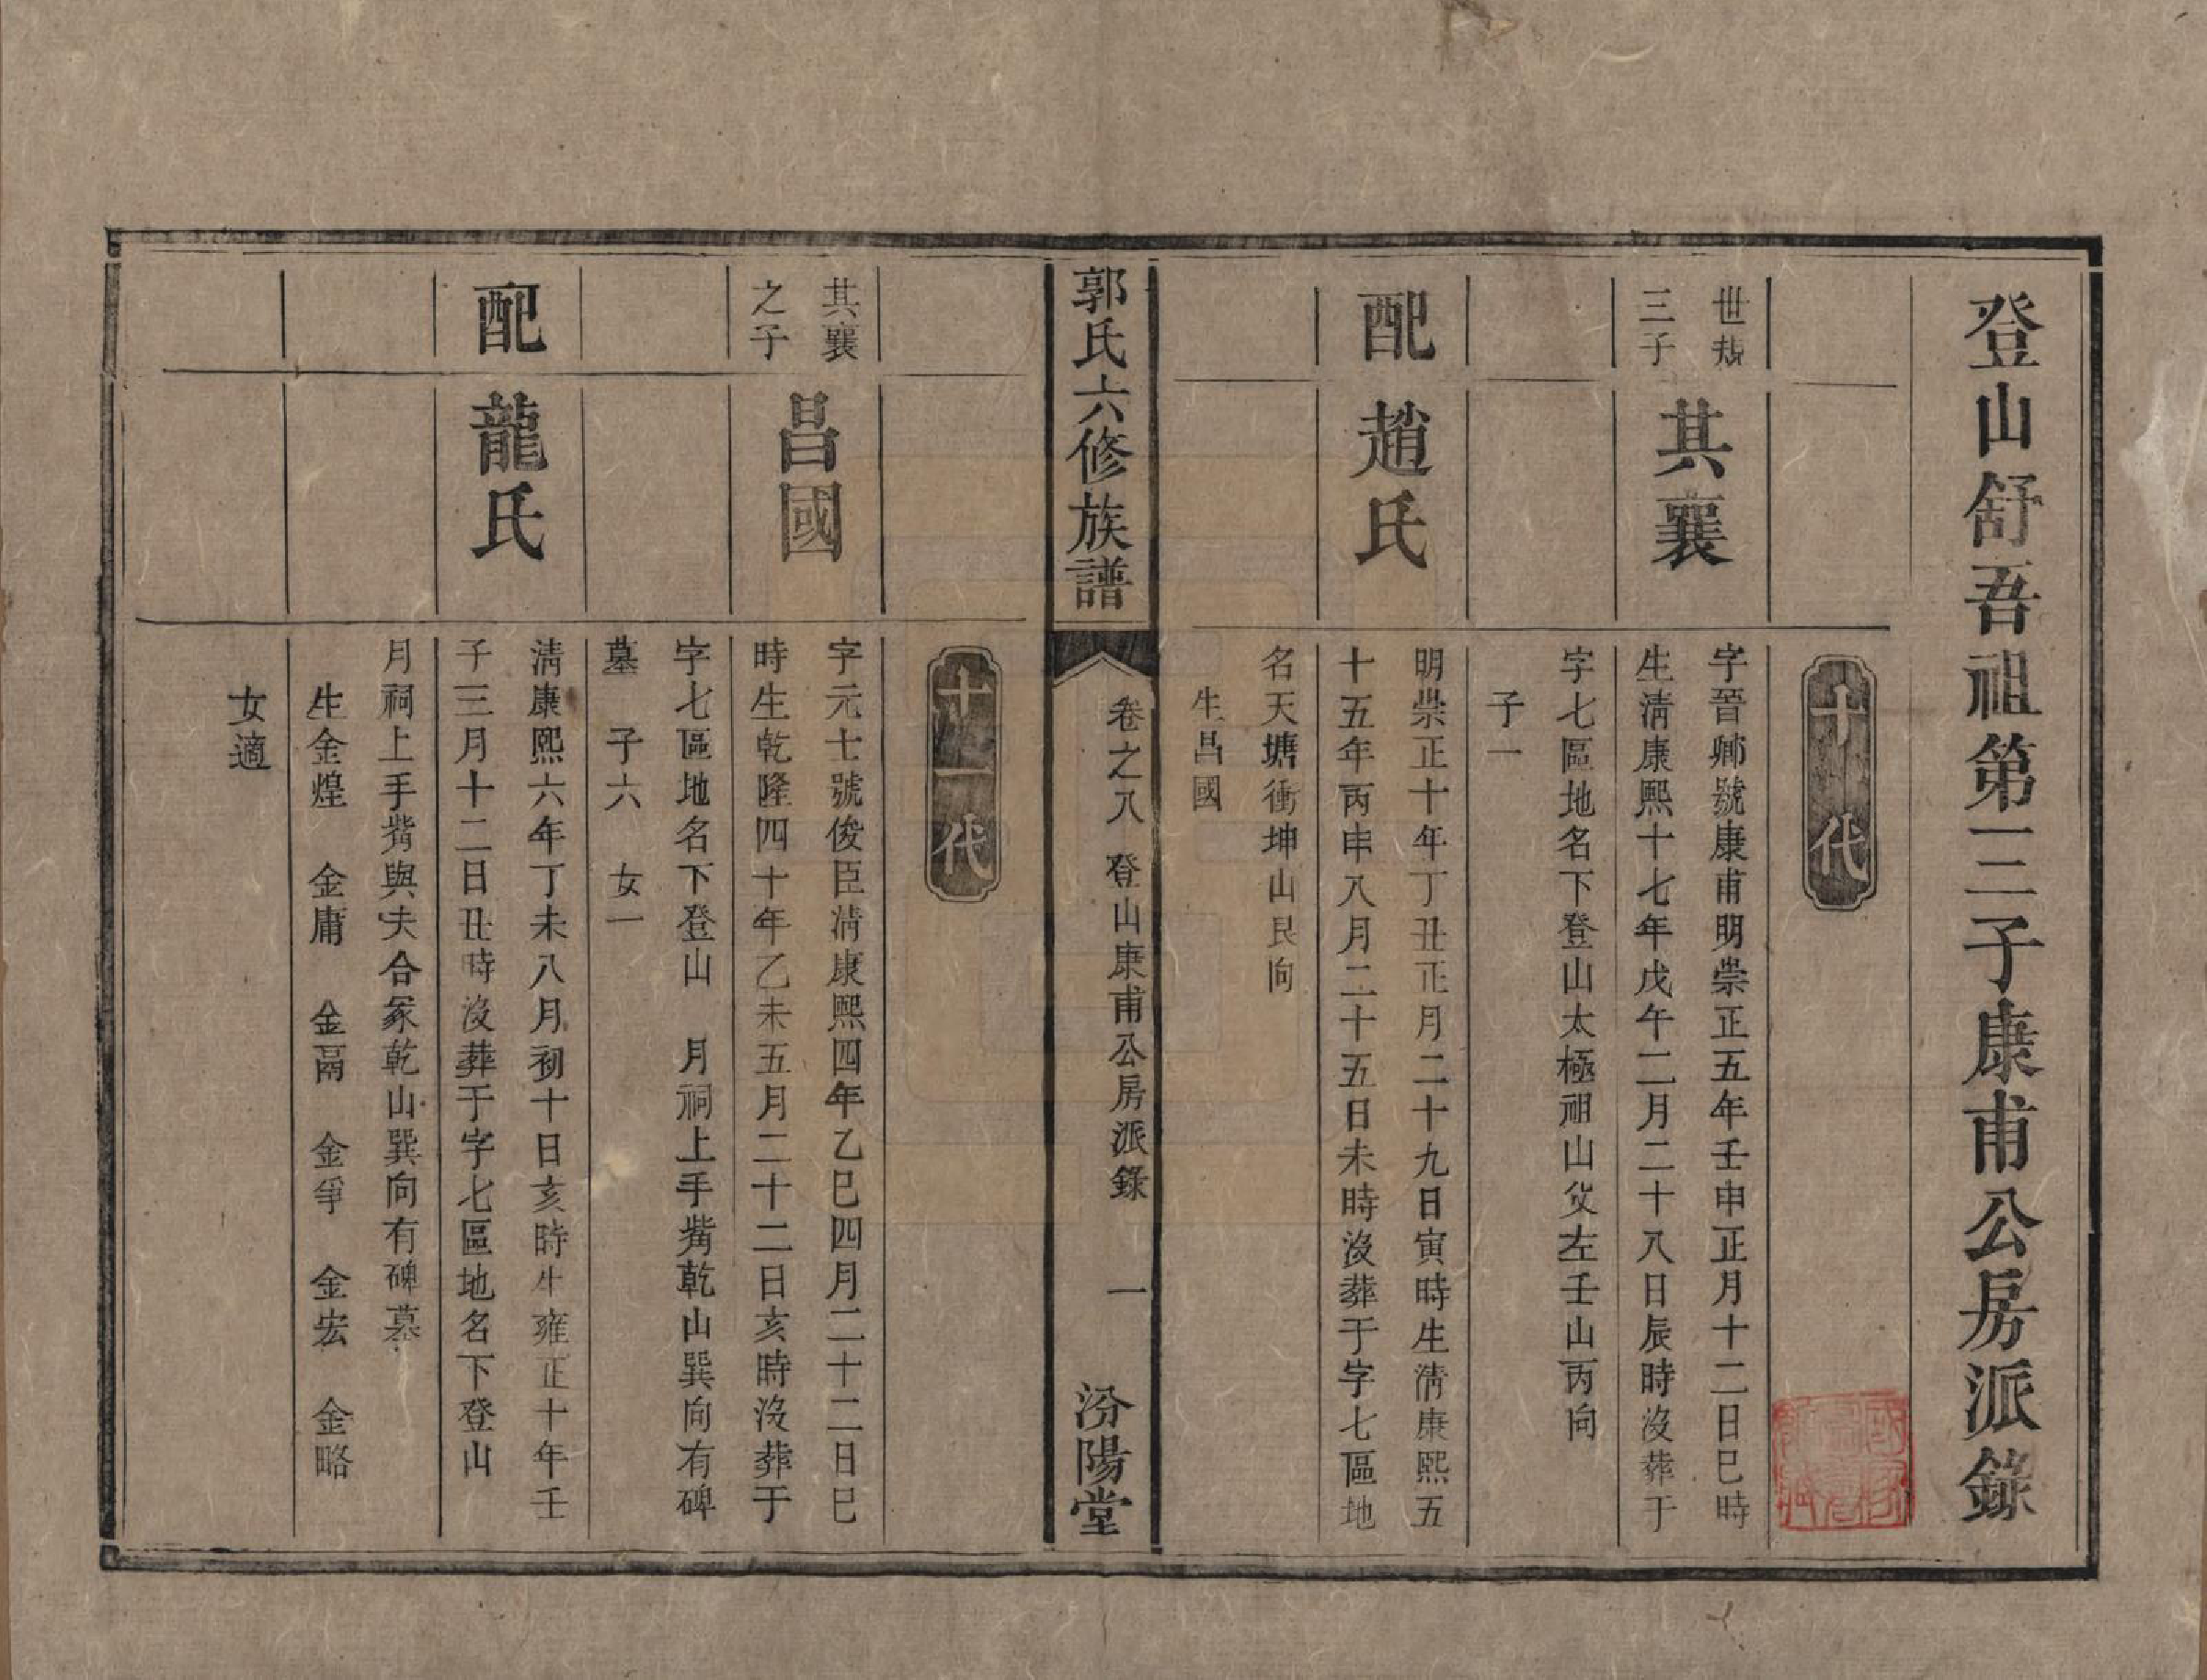 登山舒吾祖第三子康甫公房派錄
十代
世規
三子
其襄
字晉卿號康甫明崇正五年壬申正月十二日巳時
生清康熙十七年戊午二月二十八日辰時沒葬于
字七區地名下登山太極祖山父左壬山丙向
子一
配
趙氏
明崇正十年丁丑正月二十九日寅時生清康熙五
十五年丙申八月二十五日未時沒葬于字七區地
名天塘衝坤山艮向
生昌國
郭氏六修族譜
卷之八 登山康甫公房派錄
一
汾陽堂
十一代
其襄
之子
昌國
字元士號俊臣清康熙四年乙巳四月二十二日巳
時生乾隆四十年乙未五月二十二日亥時沒葬于
字七區地名下登山 月祠上手觜乾山巽向有碑
墓 子六 女一
配
龍氏
清康熙六年丁未八月初十日亥時生雍正十年壬
子三月十二日丑時沒葬于字七區地名下登山
月祠上手觜與夫合冢乾山巽向有碑墓
生金煌 金庸 金鬲 金爭 金宏 金略
女適